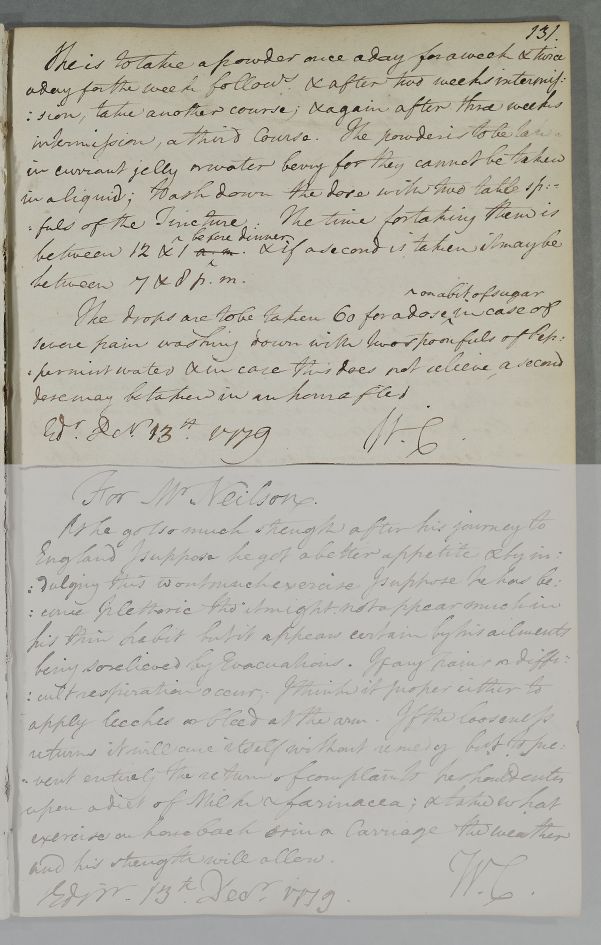 131.
She is to take a powder once a day for a week & twice
a day for the week followg & after two weeks intermis:
:sion, take another course; & again after three weeks
intermission, a third Course. The powder is to be taken
in currant jelly or water berry for they cannot be taken
in a liquid; Wash down the dose with two table sp:-
:fuls of the Tincture. The time for taking them is
before dinner
between 12 & 1 a.m. & if a second is taken it may be
between 7 & 8 p.m.
on a bit of sugar
The drops are to be taken 60 for a dose in case of
severe pain washing down with two spoonfuls of Pep:
:permint water & in case this does not relieve, a second
dose may be taken in an hour after
Edr. Decr. 13th. 1779 W.C.
For Mr Neilson.
As he got so much strength after his journey to
England I suppose he got a better appetite & by in:
:dulging this without much exercise I suppose he has be:
:come Plethoric tho it might not appear much in
his thin habit but it appears certain by his ailments
being so relieved by Evacuations. If any pains or diffi:
:cult respiration occur, I think it proper either to
apply leeches or bleed at the arm. If the looseness
returns it will cure itself without remedy but to pre:
:vent entirely the return of complaints he should enter
upon a diet of Milk & farinacea; & take what
exercise on horseback or in a Carriage the weather
and his strength will allow.
Edinr. 13th. Decr. 1779. W.C.